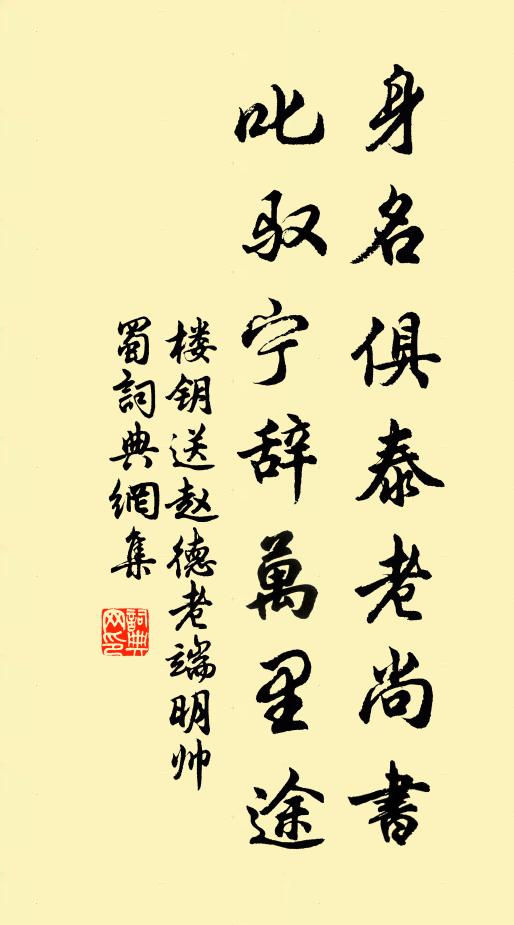 身名俱泰老尚書
叱驭宁辞萬里途
楼钥送赵德老端明帅
蜀詞典網集
詞典